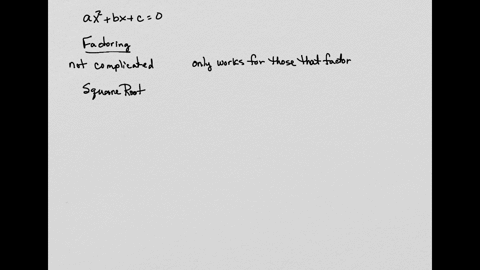 ax²+bx+c=0
Factoring
not complicated only works for those that factor
Square Root